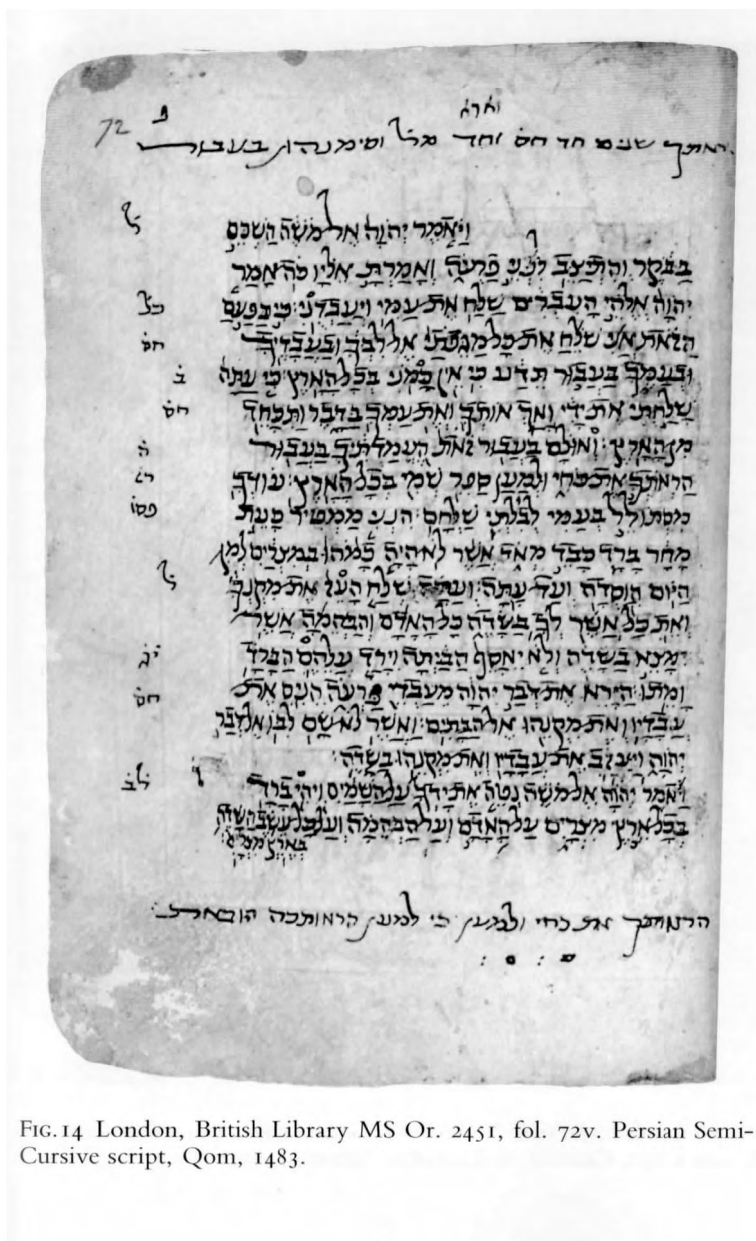 וארא
72
הראתך שנים חד חס וחד מל וסימנהון בעבור
ל ויאמר יהוה אל משה השכם
בבקר והתיצב לפני פרעה ואמרת אליו כה אמר
יהוה אלהי העברים שלח את־עמי ויעבדני׃ כי בפעם
הזאת אני שלח את־כל־מגפתי אל־לבך ובעבדיך חס
ובעמך בעבור תדע כי אין כמני בכל־הארץ׃ כי עתה ב
שלחתי את־ידי ואך אותך ואת־עמך בדבר ותכחד חס
מן־הארץ׃ ואולם בעבור זאת העמדתיך בעבור ה
הראתך את־כחי ולמען ספר שמי בכל־הארץ׃ עודך
מסתולל בעמי לבלתי שלחם׃ הנני ממטיר כעת
מחר ברד כבד מאד אשר לא־היה כמהו במצרים למן
היום הוסדה ועד־עתה׃ ועתה שלח העז את־מקנך ל
ואת כל־אשר לך בשדה כל־האדם והבהמה אשר
ימצא בשדה ולא יאסף הביתה וירד עלהם הברד יג
ומתו׃ הירא את־דבר יהוה מעבדי פרעה הניס את־ חס
עבדיו ואת־מקנהו אל־הבתים׃ ואשר לא־שם לבו אל־דבר
יהוה ויעזב את־עבדיו ואת־מקנהו בשדה׃
ויאמר יהוה אל־משה נטה את־ידך על־השמים ויהי ברד לב
בכל־ארץ מצרים על־האדם ועל־הבהמה ועל כל־עשב השדה
בארץ מצרים
הראותך את כחי ולמען כי למען הראותכה הובאת
FIG. 14 London, British Library MS Or. 2451, fol. 72v. Persian Semi-
Cursive script, Qom, 1483.